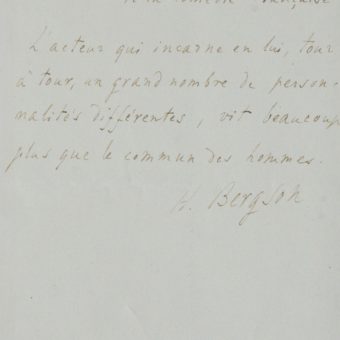 Comédie Française
L'acteur qui incarne en lui, tour
à tour, un grand nombre de person-
nalités différentes, vit beaucoup
plus que le commun des hommes.
H. Bergson